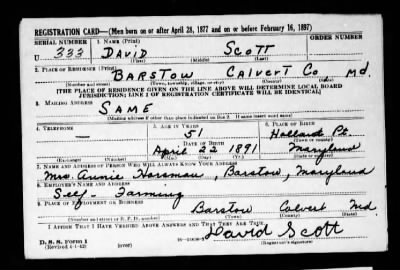 REGISTRATION CARD—(Men born on or after April 28, 1877 and on or before February 16, 1897)
SERIAL NUMBER 1. NAME (Print) ORDER NUMBER
U 333 DAVID SCOTT
(First) (Middle) (Last)
2. PLACE OF RESIDENCE (Print)
BARSTOW CALVERT Co Md.
(Number and street) (Town, township, village, or city) (County) (State)
[THE PLACE OF RESIDENCE GIVEN ON THE LINE ABOVE WILL DETERMINE LOCAL BOARD
JURISDICTION; LINE 2 OF REGISTRATION CERTIFICATE WILL BE IDENTICAL]
3. MAILING ADDRESS
SAME
[Mailing address if other than place indicated on line 2. If same insert word same]
4. TELEPHONE 5. AGE IN YEARS 6. PLACE OF BIRTH
— 51 Holland Pt.
DATE OF BIRTH (Town or county)
April 22 1891 Maryland
(Exchange) (Number) (Mo.) (Day) (Yr.) (State or country)
7. NAME AND ADDRESS OF PERSON WHO WILL ALWAYS KNOW YOUR ADDRESS
Mrs. Annie Horsman, Barstow, Maryland
8. EMPLOYER'S NAME AND ADDRESS
Self - Farming
9. PLACE OF EMPLOYMENT OR BUSINESS
Barstow Calvert Md
(Number and street or R. F. D. number) (Town) (County) (State)
I AFFIRM THAT I HAVE VERIFIED ABOVE ANSWERS AND THAT THEY ARE TRUE.
David Scott
D. S. S. Form 1
(Revised 4-1-42) (over) (Registrant's signature)